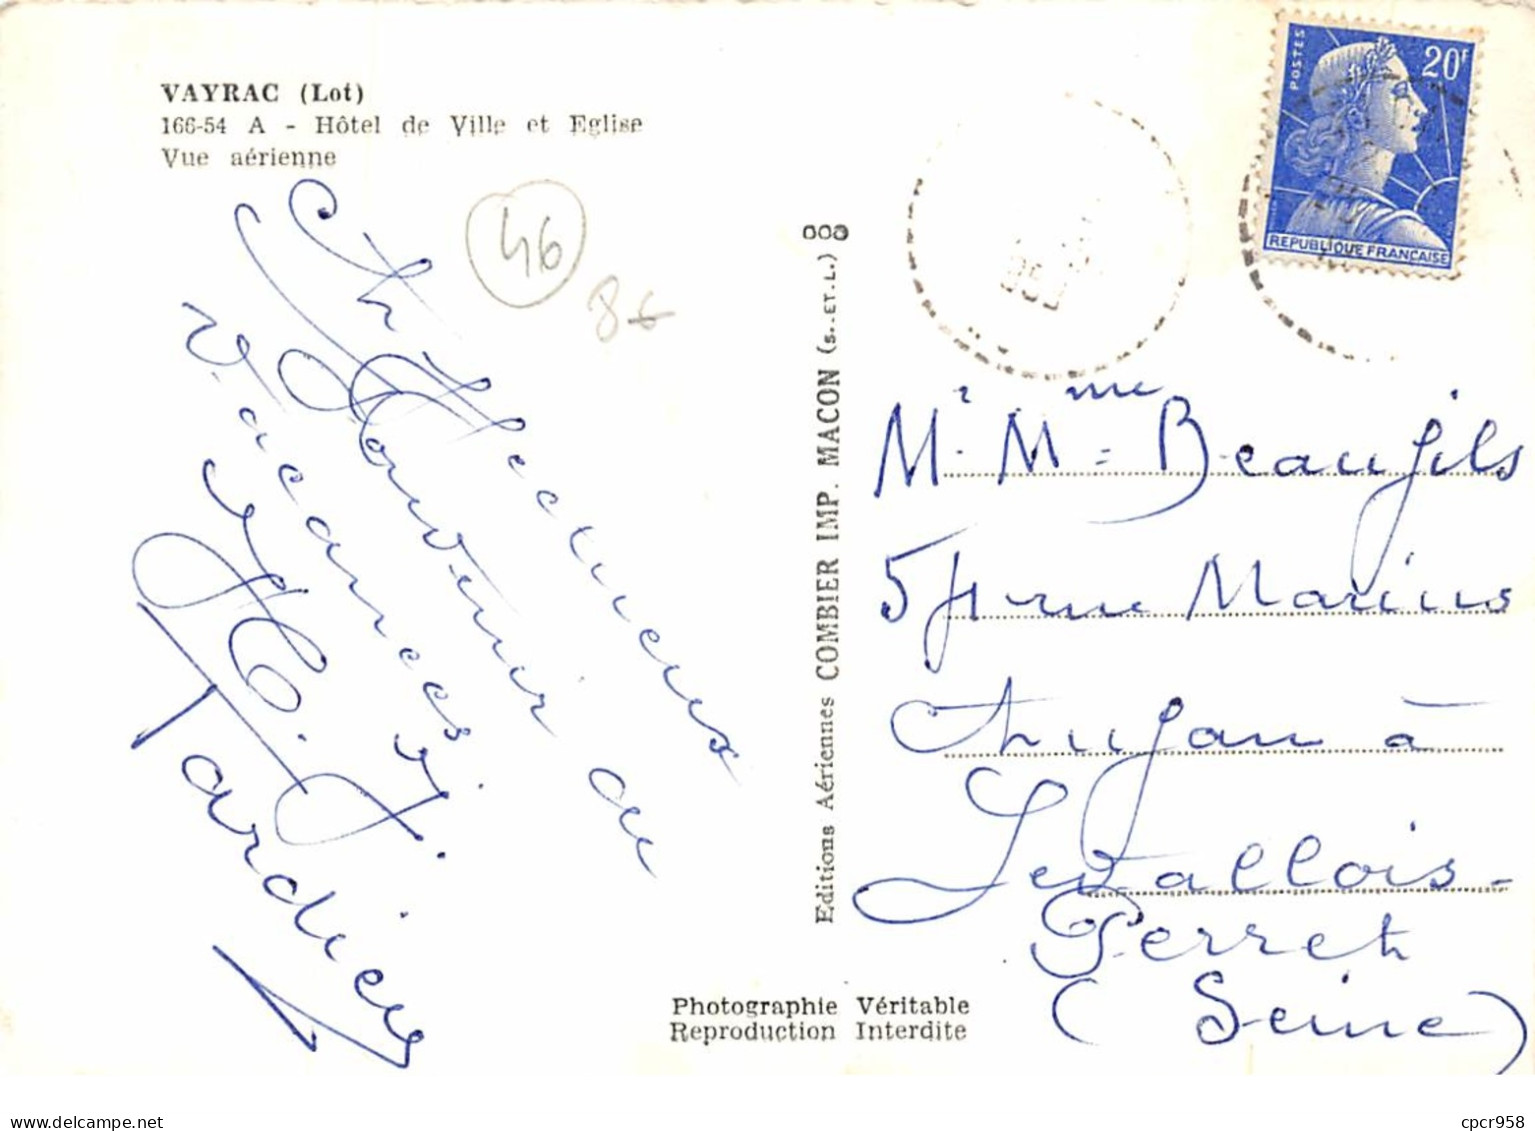 VAYRAC (Lot)
166-54 A - Hôtel de Ville et Eglise
Vue aérienne
46
8€
Affectueux
Souvenir de
Vacances
Tardieu
Editions Aériennes COMBIER IMP. MACON (S.-ET-L.)
Photographie Véritable
Reproduction Interdite
POSTES
20F
REPUBLIQUE FRANÇAISE
Mr Mme Beaufils
rue Marius
à
Levallois-
Perret
(Seine)
delcampe.net
cpcr958